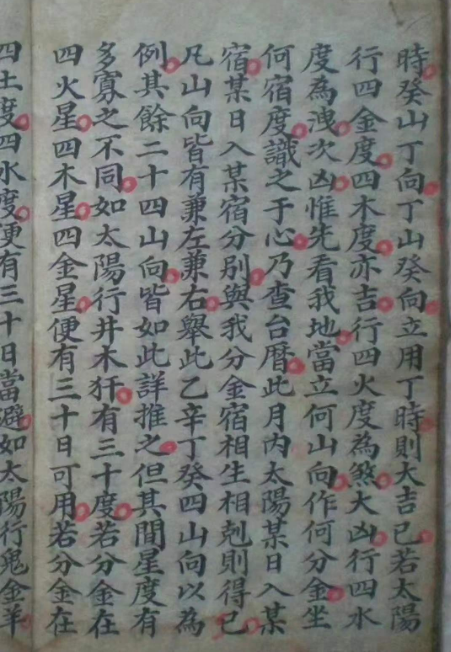 時癸山丁向丁山癸向立用丁時則大吉已若太陽
行四金度四木度亦吉行四火度為煞大凶行四水
度為洩次凶惟先看我地當立何山向作何分金坐
何宿度識之于心乃查台曆此月內太陽某日入某
宿某日入某宿分別與我分金宿相生相剋則得已
凡山向皆有兼左兼右舉此乙辛丁癸四山向以為
例其餘二十四山向皆如此詳推之但其間星度有
多寡之不同如太陽行井木犴有三十度若分金在
四火星四木星四金星便有三十日可用若分金在
四土度四水度便有三十日當避如太陽行鬼金羊